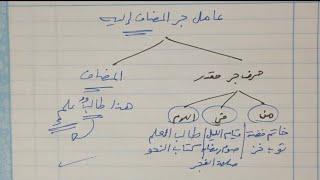 عامل جر المضاف إليه
حرف جر مقدر
المضاف
من في اللام
هذا طالبُ علمٍ
خاتم فضة قيام الليل طالب العلم
ثوب خز صوم رمضان كتاب النحو
صلاة الفجر